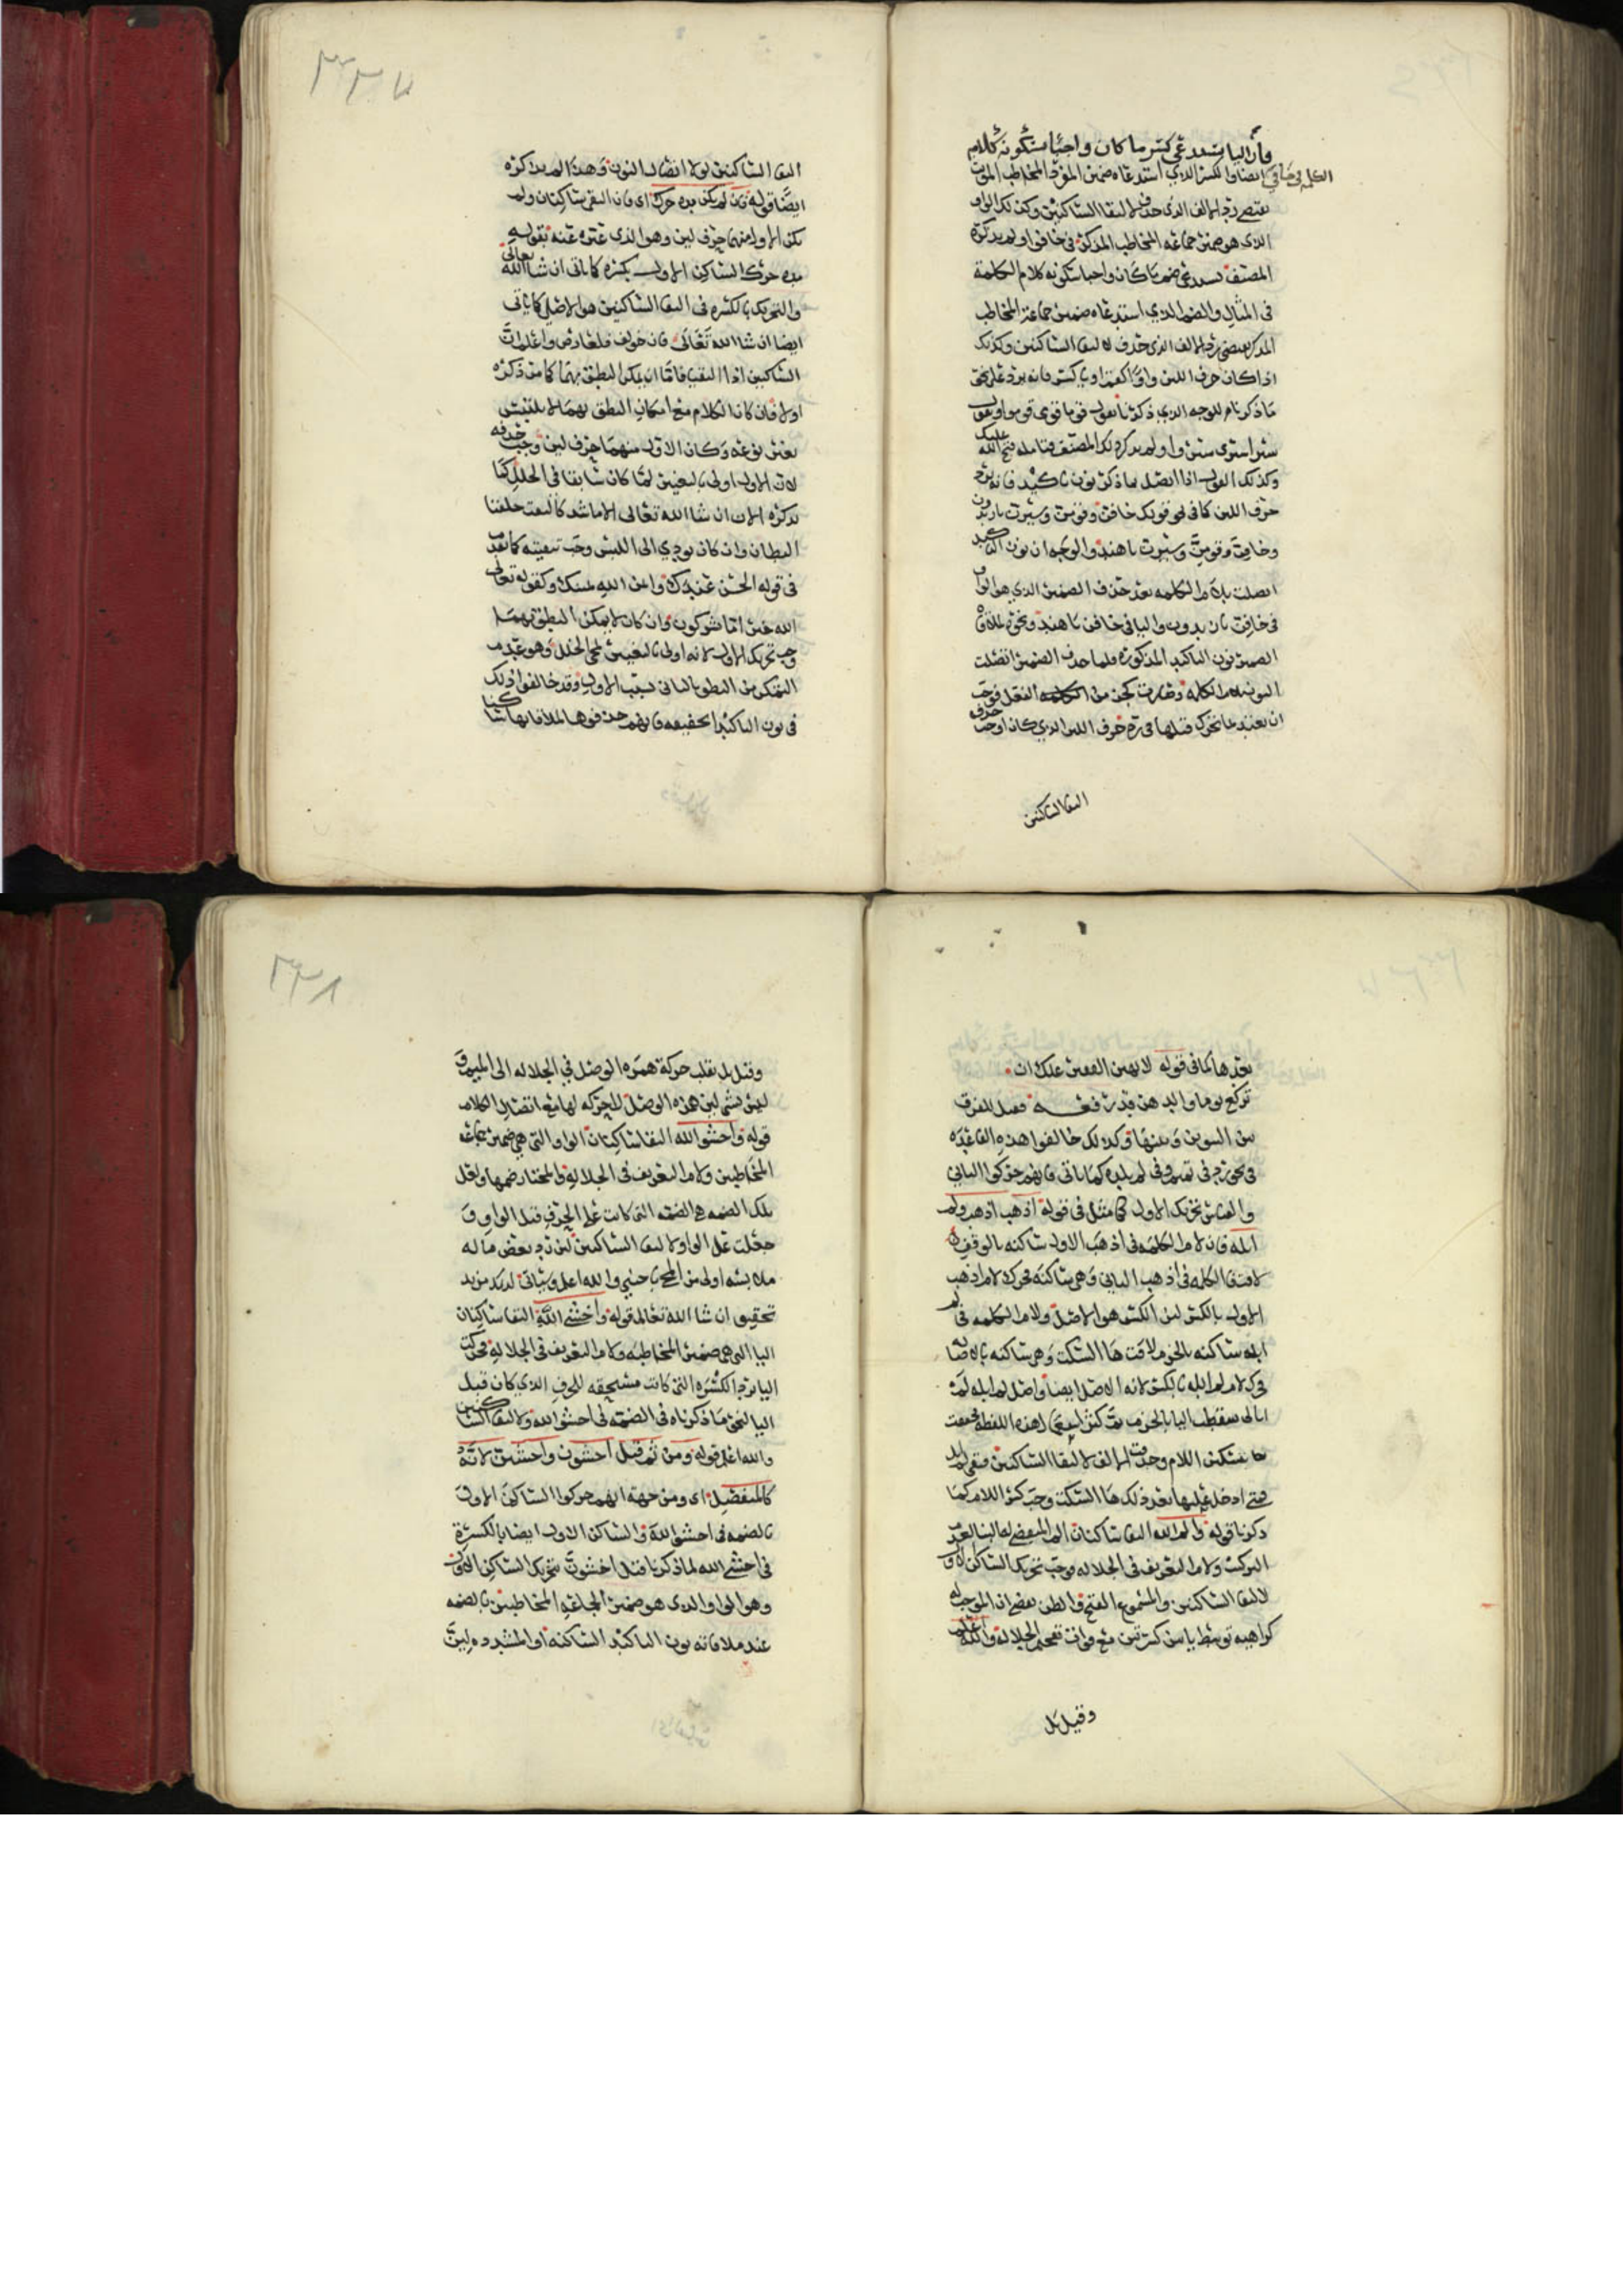 وأن اليا تستدعي كسر ما كان واجبا سكونه كلام
الكلمة في خافي ايضا والكسر الذي استدعاه ضمير المفرد المخاطب المونث
يقتضي رد الالف الذي حذف لالتقا الساكنين وكذلك الواو
الذي هو ضمير جماعة المخاطب المذكر في خافوا ولم يذكره
المصنف تستدعي ضم ما كان واجبا سكونه كلام الكلمة
في المثال والضم الذي استدعاه ضمير جماعة المخاطب
المذكر يقتضي رد الالف الذي حذف لالتقا الساكنين وكذلك
اذا كان حرف اللين واوا او يا فانه يرد على نحو
ما ذكرنا للوجه الذي ذكرنا تقول قوما قوي قوموا وتقول
سيرا سيري سيروا ولم يذكر ذلك المصنف فتامله فتح الله عليك
وكذلك القول اذا اتصل بما ذكر نون تاكيد فانه يرد
حرف اللين كما في نحو قولك خافن وقومن وسيرن يا زيدون
وخافن وقومن وسيرن يا هند والوجه ان نون التاكيد
اتصلت بلام الكلمة بعد حذف الضمير الذي هو الواو
في خافن يا زيدون واليا في خافن يا هند ونحوه لملاقاة
الضمير نون التاكيد المذكورة فلما حذف الضمير اتصلت
النون بلام الكلمة وصارت كجزء من الفعل فوجب
ان يعتد بما تحرك قبلها في رد حرف اللين الذي كان اوجب حذفه
التقا الساكنين
٣٣٧
التقا الساكنين لولا اتصال النون وهذا لم يذكره
ايضا قوله فان لم يكن مده حرك اي فان التقى ساكنان ولم
يكن الاول منهما حرف لين وهو الذي عبر عنه بقوله
مده حرك الساكن الاول بكسره كما ياتي ان شا الله تعالى
والتحريك بالكسره في التقا الساكنين هو الاصل كما ياتي
ايضا ان شا الله تعالى فان خولف فلعارض واعلم ان
الساكنين اذا التقيا فاما ان يمكن النطق بهما كما مر ذكره
اولا فان كان الكلام مع امكان النطق بهما لا يلتبس
بغير نوعه وكان الاول منهما حرف لين وجب حذفه
لان الاول اولى بالتغيير لما كان سابقا في الحلل كما
نذكره الان ان شا الله تعالى الا ما شذ كالتقت حلقتا
البطان وان كان يودي الى اللبس وجب تبقيته كما تقدم
في قوله الحسن عندك وايمن الله يمينك وكقوله تعالى
الله خير اما تشركون وان كان لا يمكن النطق بهما
وجب تحريك الاول لانه اولى بالتغيير لمحل الخلل وهو عدم
التمكن من النطق بالثاني بسبب الاول وقد خالفوا ذلك
في نون التاكيد الخفيفة فانهم حذفوها لملاقاتها ساكنا
بعدها كما في قوله لا تهين الفقير علك ان
تركع يوما والدهر قد رفعه فصل للفرق
بين التنوين وبينها وكذلك خالفوا هذه القاعدة
في نحو رد في تميم وفي لم يلده كما ياتي فانهم حركوا الثاني
والقياس تحريك الاول كما مثل في قوله اذهب اذهب ولم
ابله فان لام الكلمة في اذهب الاول ساكنه بالوقف
لاقت فا الكلمة في اذهب الثاني وهي ساكنه فحرك لام اذهب
الاول بالكسر لان الكسر هو الاصل ولام الكلمة في لم
ابله ساكنه بالجزم لاقت ها السكت وهي ساكنه بالاصاله
فحرك لام لم ابله بالكسر لانه الاصل ايضا واصل لم ابله لم
ابالي سقطت اليا بالجزم ثم كثر استعمال هذه اللفظة فخففت
باسكان اللام وحذفت الالف لالتقا الساكنين فبقي لم ابل
فمتى ادخل عليها بعد ذلك ها السكت وجب كسر اللام كما
ذكرنا قوله والم الله التقا ساكنان الميم المقتضي لها البنا لعدم
التركيب ولام التعريف في الجلاله فوجب تحريك الساكن الاول
لالتقا الساكنين والمسموع الفتح والظن يقضي ان الموجب له
كراهية توسط يا بين كسرتين مع فوات تفخيم الجلاله والله اعلم
وقيل بل
٣٣٨
وقيل بل نقلت حركة همزه الوصل في الجلاله الى الميم و
ليس بشي لان همزه الوصل لا حركة لها مع اتصال الكلام
قوله واخشوا الله التقا ساكنان الواو التي هي ضمير جماعة
المخاطبين ولام التعريف في الجلاله والمختار ضمها ولعل
تلك الضمه هي الضمه التي كانت على الحرف قبل الواو و
جعلت على الواو لالتقا الساكنين لان رد بعض ما له
ملابسه اولى من المجي باجنبي والله اعلم وسياتي لذلك مزيد
تحقيق ان شا الله تعالى قوله واخشي الله التقا ساكنان
اليا التي هي ضمير المخاطبه ولام التعريف في الجلاله فحركت
اليا برد الكسره التي كانت مستحقه للحرف الذي كان قبل
اليا لنحو ما ذكرناه في الضمه في اخشوا الله ولالتقا الساكنين
والله اعلم قوله ومن ثم قيل اخشون واخشين لانه
كالمنفصل اي ومن جهة انهم حركوا الساكن الاول
بالضمه في اخشوا الله والساكن الاول ايضا بالكسرة
في اخشي الله لما ذكرنا قيل اخشون بتحريك الساكن الاول
وهو الواو الذي هو ضمير الجماعة المخاطبين بالضمه
عند ملاقاته نون التاكيد الساكنه او المشدده لان